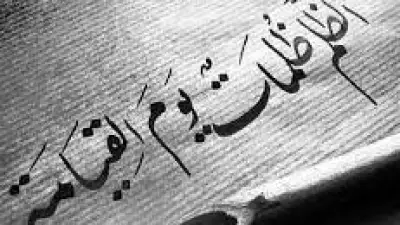 الظلم ظُلُمات يَومَ القِيامَة